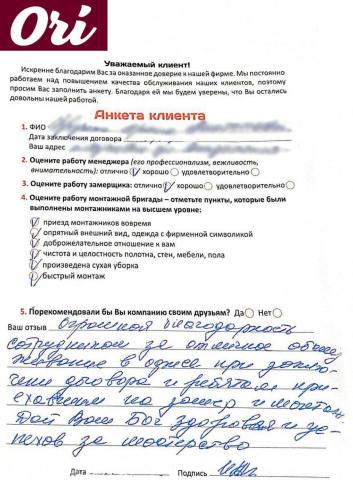 Ori
Уважаемый клиент!
Искренне благодарим Вас за оказанное доверие к нашей фирме. Мы постоянно
работаем над повышением качества обслуживания наших клиентов, поэтому
просим Вас заполнить анкету. Благодаря ей мы будем уверены, что Вы остались
довольны нашей работой.
Анкета клиента
1. ФИО
Дата заключения договора
Ваш адрес
2. Оцените работу менеджера (его профессионализм, вежливость,
внимательность): отлично хорошо удовлетворительно
3. Оцените работу замерщика: отлично хорошо удовлетворительно
4. Оцените работу монтажной бригады – отметьте пункты, которые были
выполнены монтажниками на высшем уровне:
приезд монтажников вовремя
опрятный внешний вид, одежда с фирменной символикой
доброжелательное отношение к вам
чистота и целостность полотна, стен, мебели, пола
произведена сухая уборка
быстрый монтаж
5. Порекомендовали бы Вы компанию своим друзьям? Да Нет
Ваш отзыв Огромная благодарность
сотрудникам за отличное обслу
живание в офисе при заклю-
чении договора и ребятам при-
ехавшим на замер и монтаж.
Дай Вам Бог здоровья и ус-
пехов за мастерство
Дата Подпись